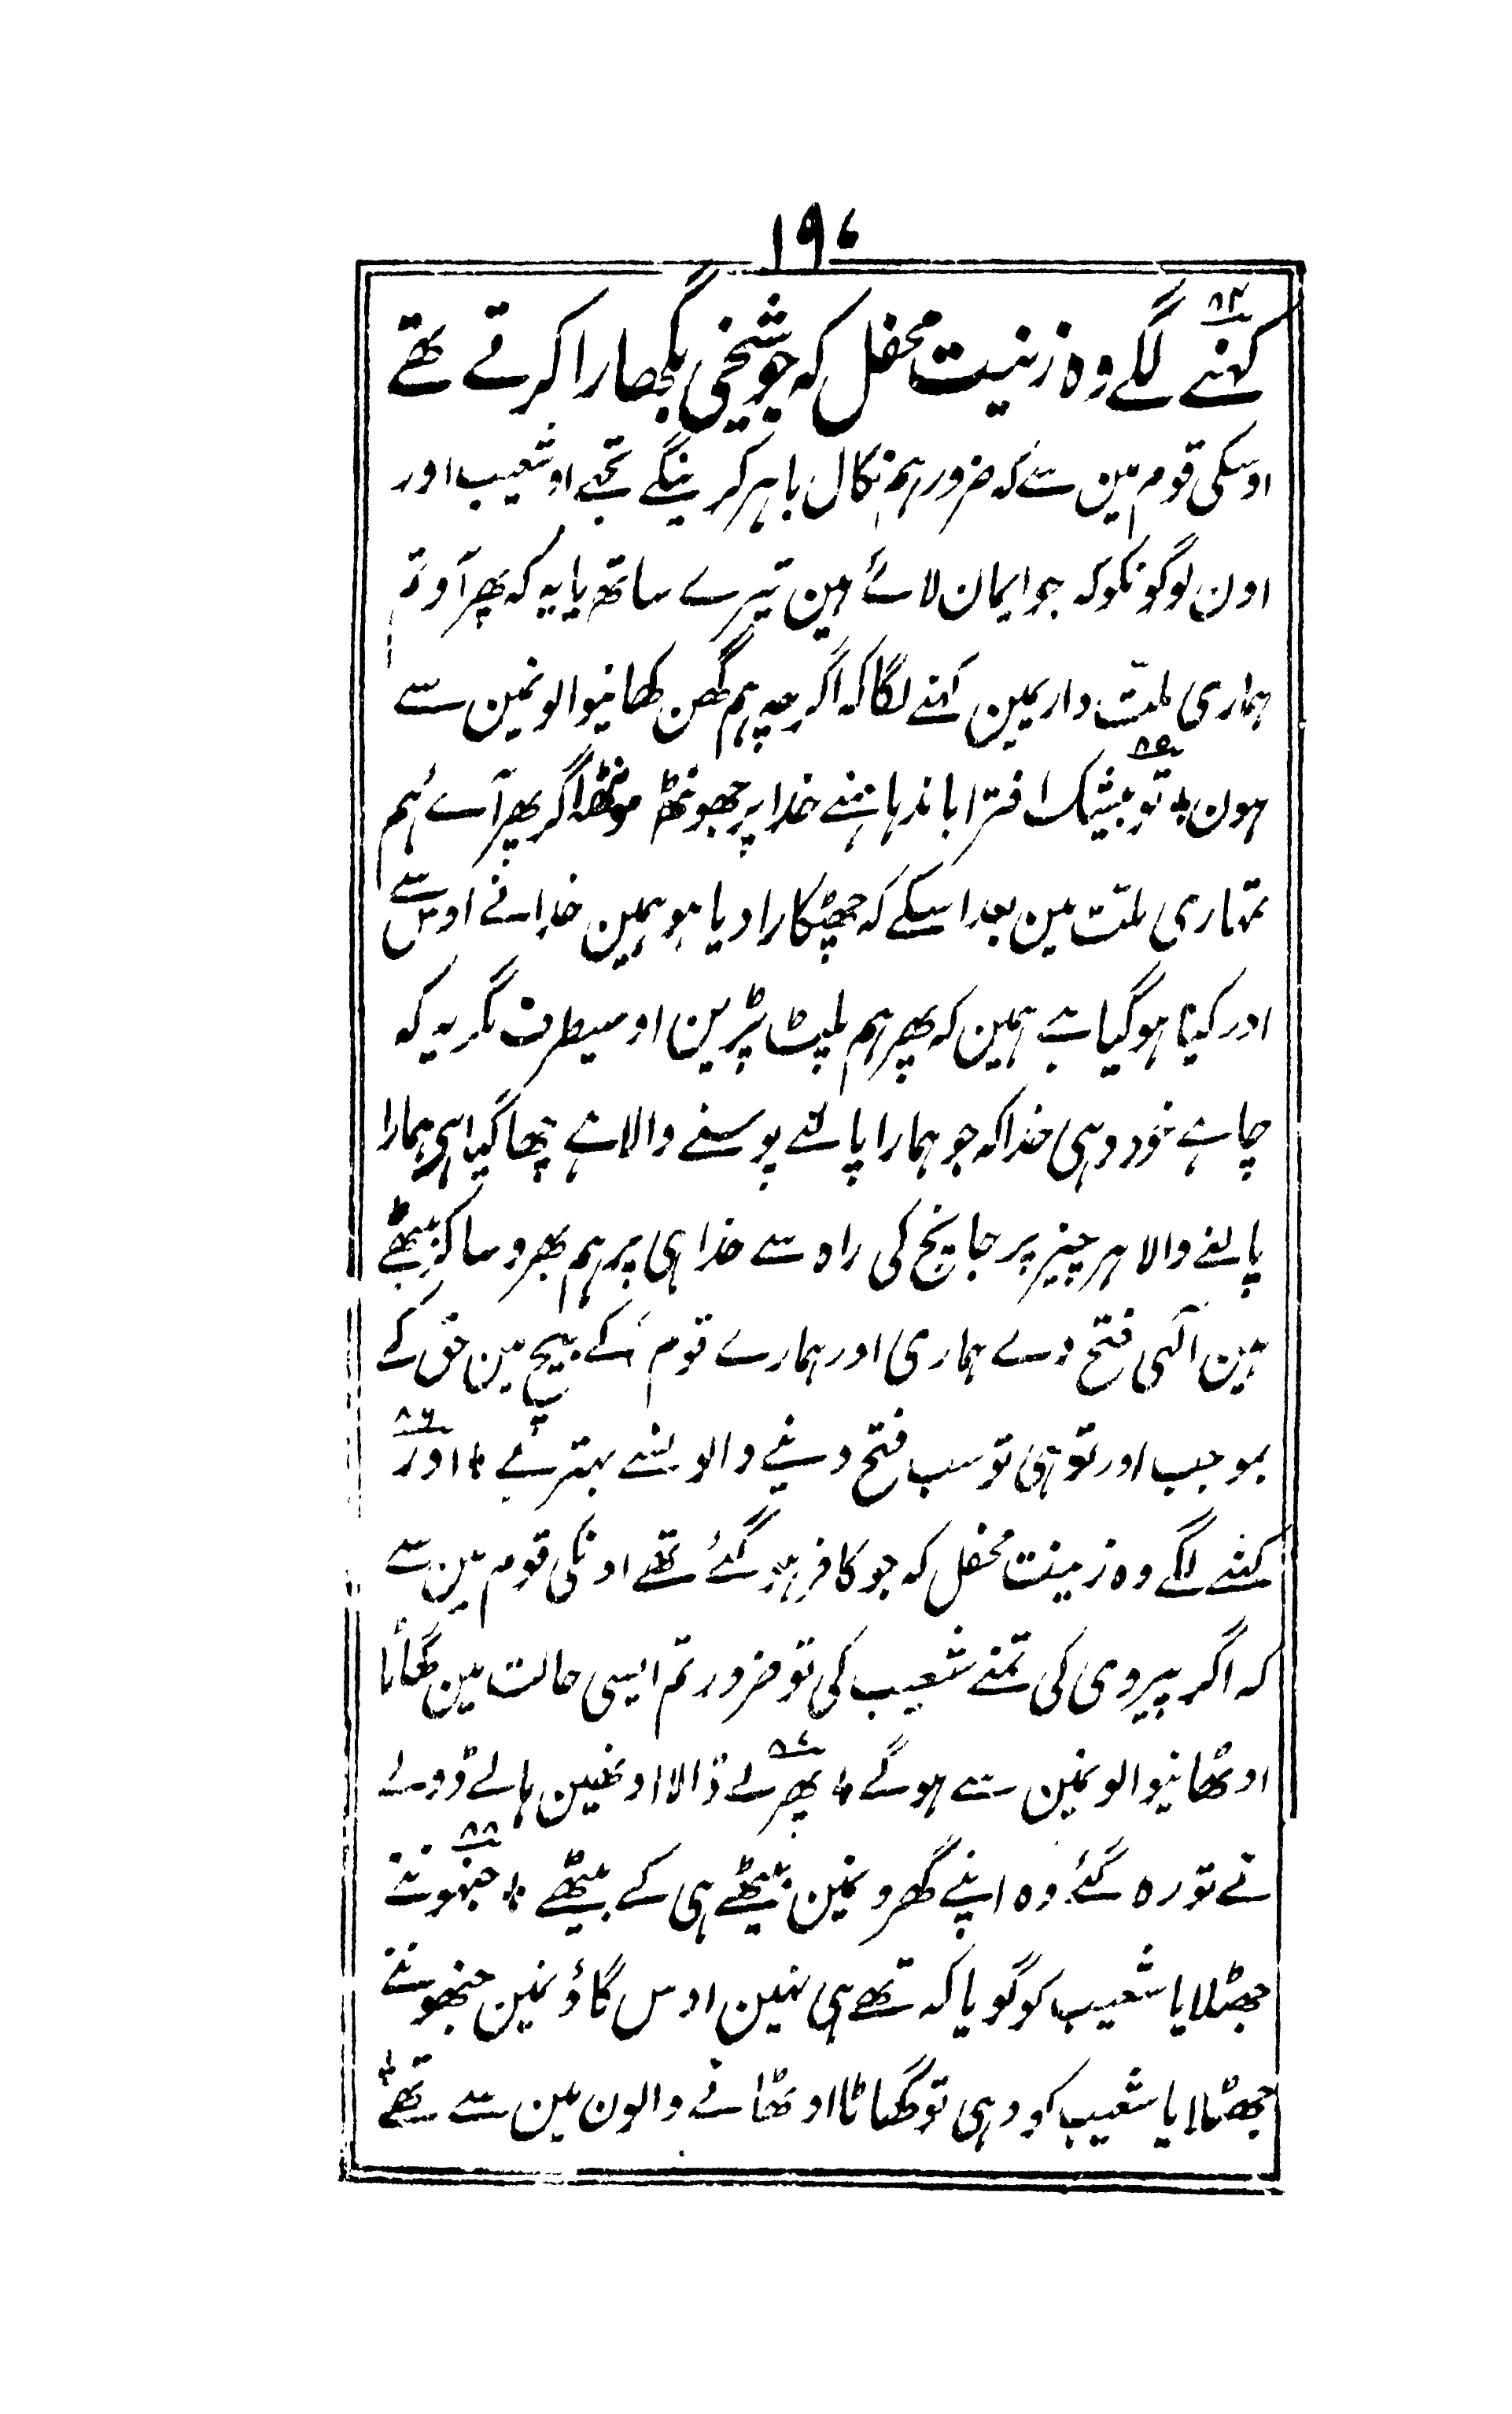 ۱۹۷
۸۴
کہنے لگے وہ زنیت محفل کہ جو شیخی بگھارا کرتے تھے
اوسکی قوم مین سے کہ ضرور ہم نکال باہر کرینگے تجھے او شعیب اور
اون لوگونکو کہ جو ایمان لائے ہین تیرے ساتھ یا یہ کہ پھر آؤ تم
ہماری ملت داریمین کہنے لگا کہ اگرچہ ہم گھن کھانیوالونمین سے
۸۵
ہون ٭ تو بیشک افترا باندہا ہمنے خدا پر جھونٹھ موٹھ اگر پھر آئے ہم
تمہاری ملت مین بعد اسکے کہ چھٹکارا دیا ہو ہمین خدا نے اوس سے
اور کیا ہو گیا ہے ہمین کہ پھر ہم پلٹ پڑین اوسیطرف مگر یہ کہ
چاہے خود وہی خدا کہ جو ہمارا پالنے پوسنے والا ہے چھا گیا ہی ہمارا
پالنے والا ہر چیز پر جانچ کی راہ سے خدا ہی پر ہم بھروسا کر بیٹھے
ہین الٰہی فتح دے ہماری اور ہمارے قوم کے بیچ مین حق کے
۸۶
بموجب اور تو ہی تو سب فتح دینے والونسے بہتر ہے ٭ اور
کہنے لگے وہ زینت محفل کہ جو کافر ہو گئے تھے اونکی قوم مین سے
کہ اگر پیروی کی تمنے شعیب کی تو ضرور تم ایسی حالت مین گھاٹا
۸۷
اوٹھانیوالونمین سے ہوگے ٭ پھر لے ڈالا اونھین ہالے ڈولے
۸۸
نے تو رہ گئے وہ اپنے گھرونمین بیٹھے ہی کے بیٹھے ٭ جنہونے
جھٹلایا شعیب کو گویا کہ تھے ہی نہین اوس گاؤنمین جنھونے
جھٹلایا شعیب کو وہی تو گھاٹا اوٹھانے والون مین سے تھے ٭